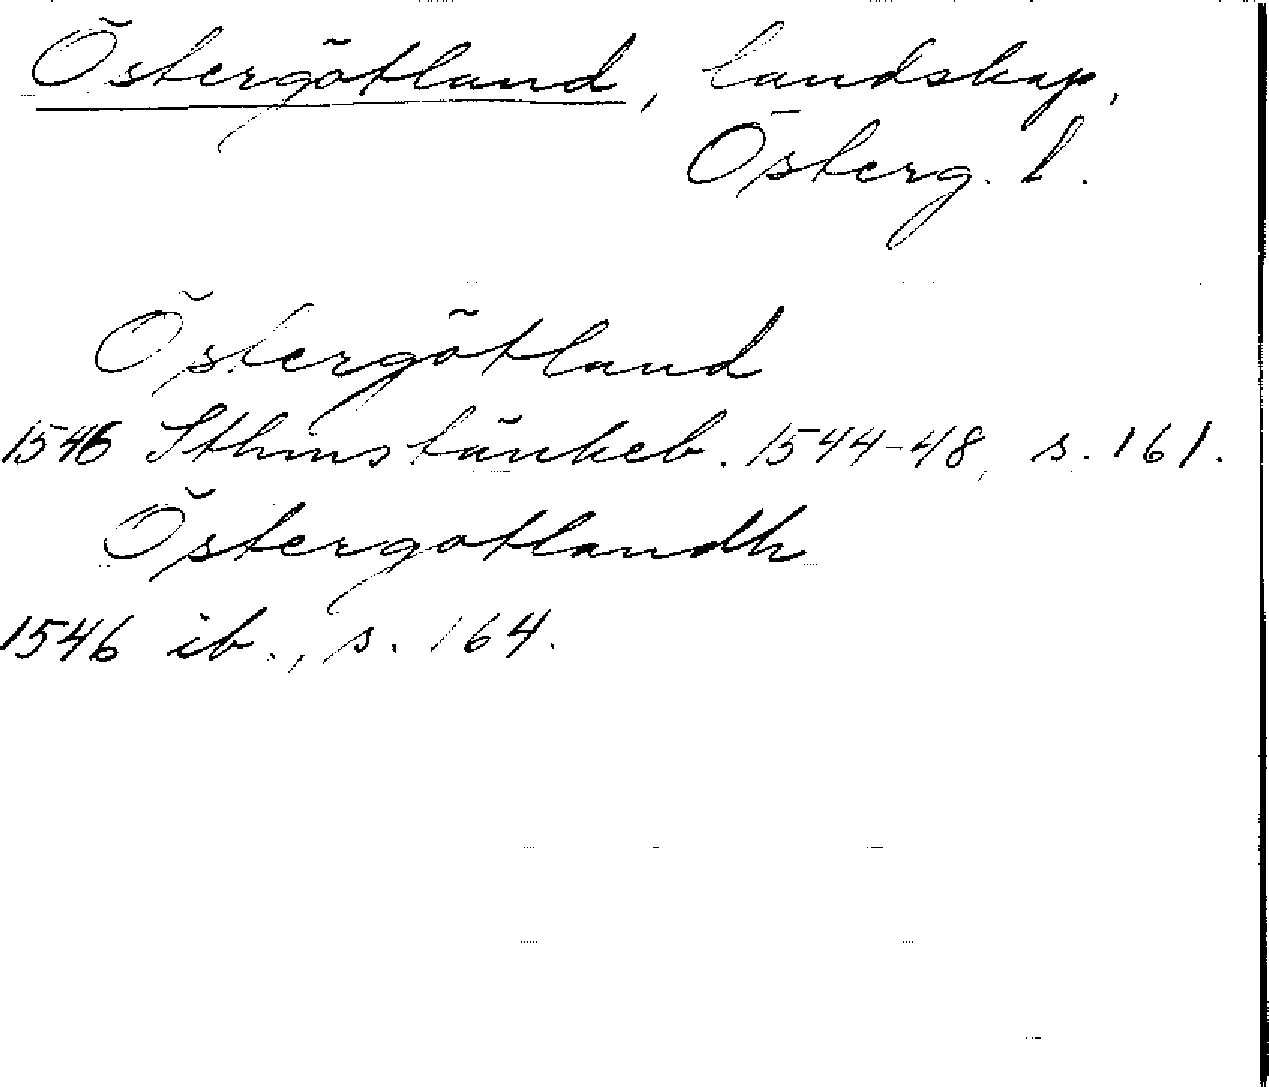 Östergötland, landskap,
Österg. l.
Östergötland
1546 Sthms tänkeb. 1544-48, s. 161.
Östergotlandh
1546 ib., s. 164.